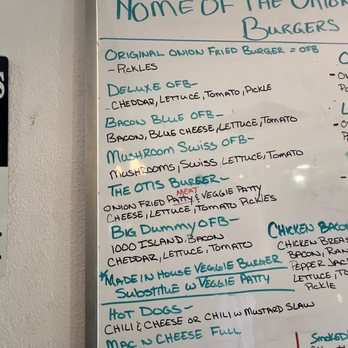 HOME OF THE ONION
BURGERS
ORIGINAL ONION FRIED BURGER = OFB
- PICKLES
DELUXE OFB-
- CHEDDAR, LETTUCE, TOMATO, PICKLE
BACON BLUE OFB-
BACON, BLUE CHEESE, LETTUCE, TOMATO
MUSHROOM SWISS OFB-
MUSHROOMS, SWISS LETTUCE, TOMATO
THE OTIS BURGER-
MEAT
ONION FRIED PATTY & VEGGIE PATTY
CHEESE, LETTUCE, TOMATO PICKLES
BIG DUMMY OFB-
1000 ISLAND, BACON
CHEDDAR, LETTUCE, TOMATO
*MADE IN HOUSE VEGGIE BURGER
SUBSTITUTE W/ VEGGIE PATTY
HOT DOGS-
CHILI & CHEESE OR CHILI W/ MUSTARD SLAW
MAC N CHEESE FULL
CHICKEN BACO
CHICKEN BREAS
BACON, RAN
PEPPER JAC
LETTUCE, TO
PICKLE
SMOKED